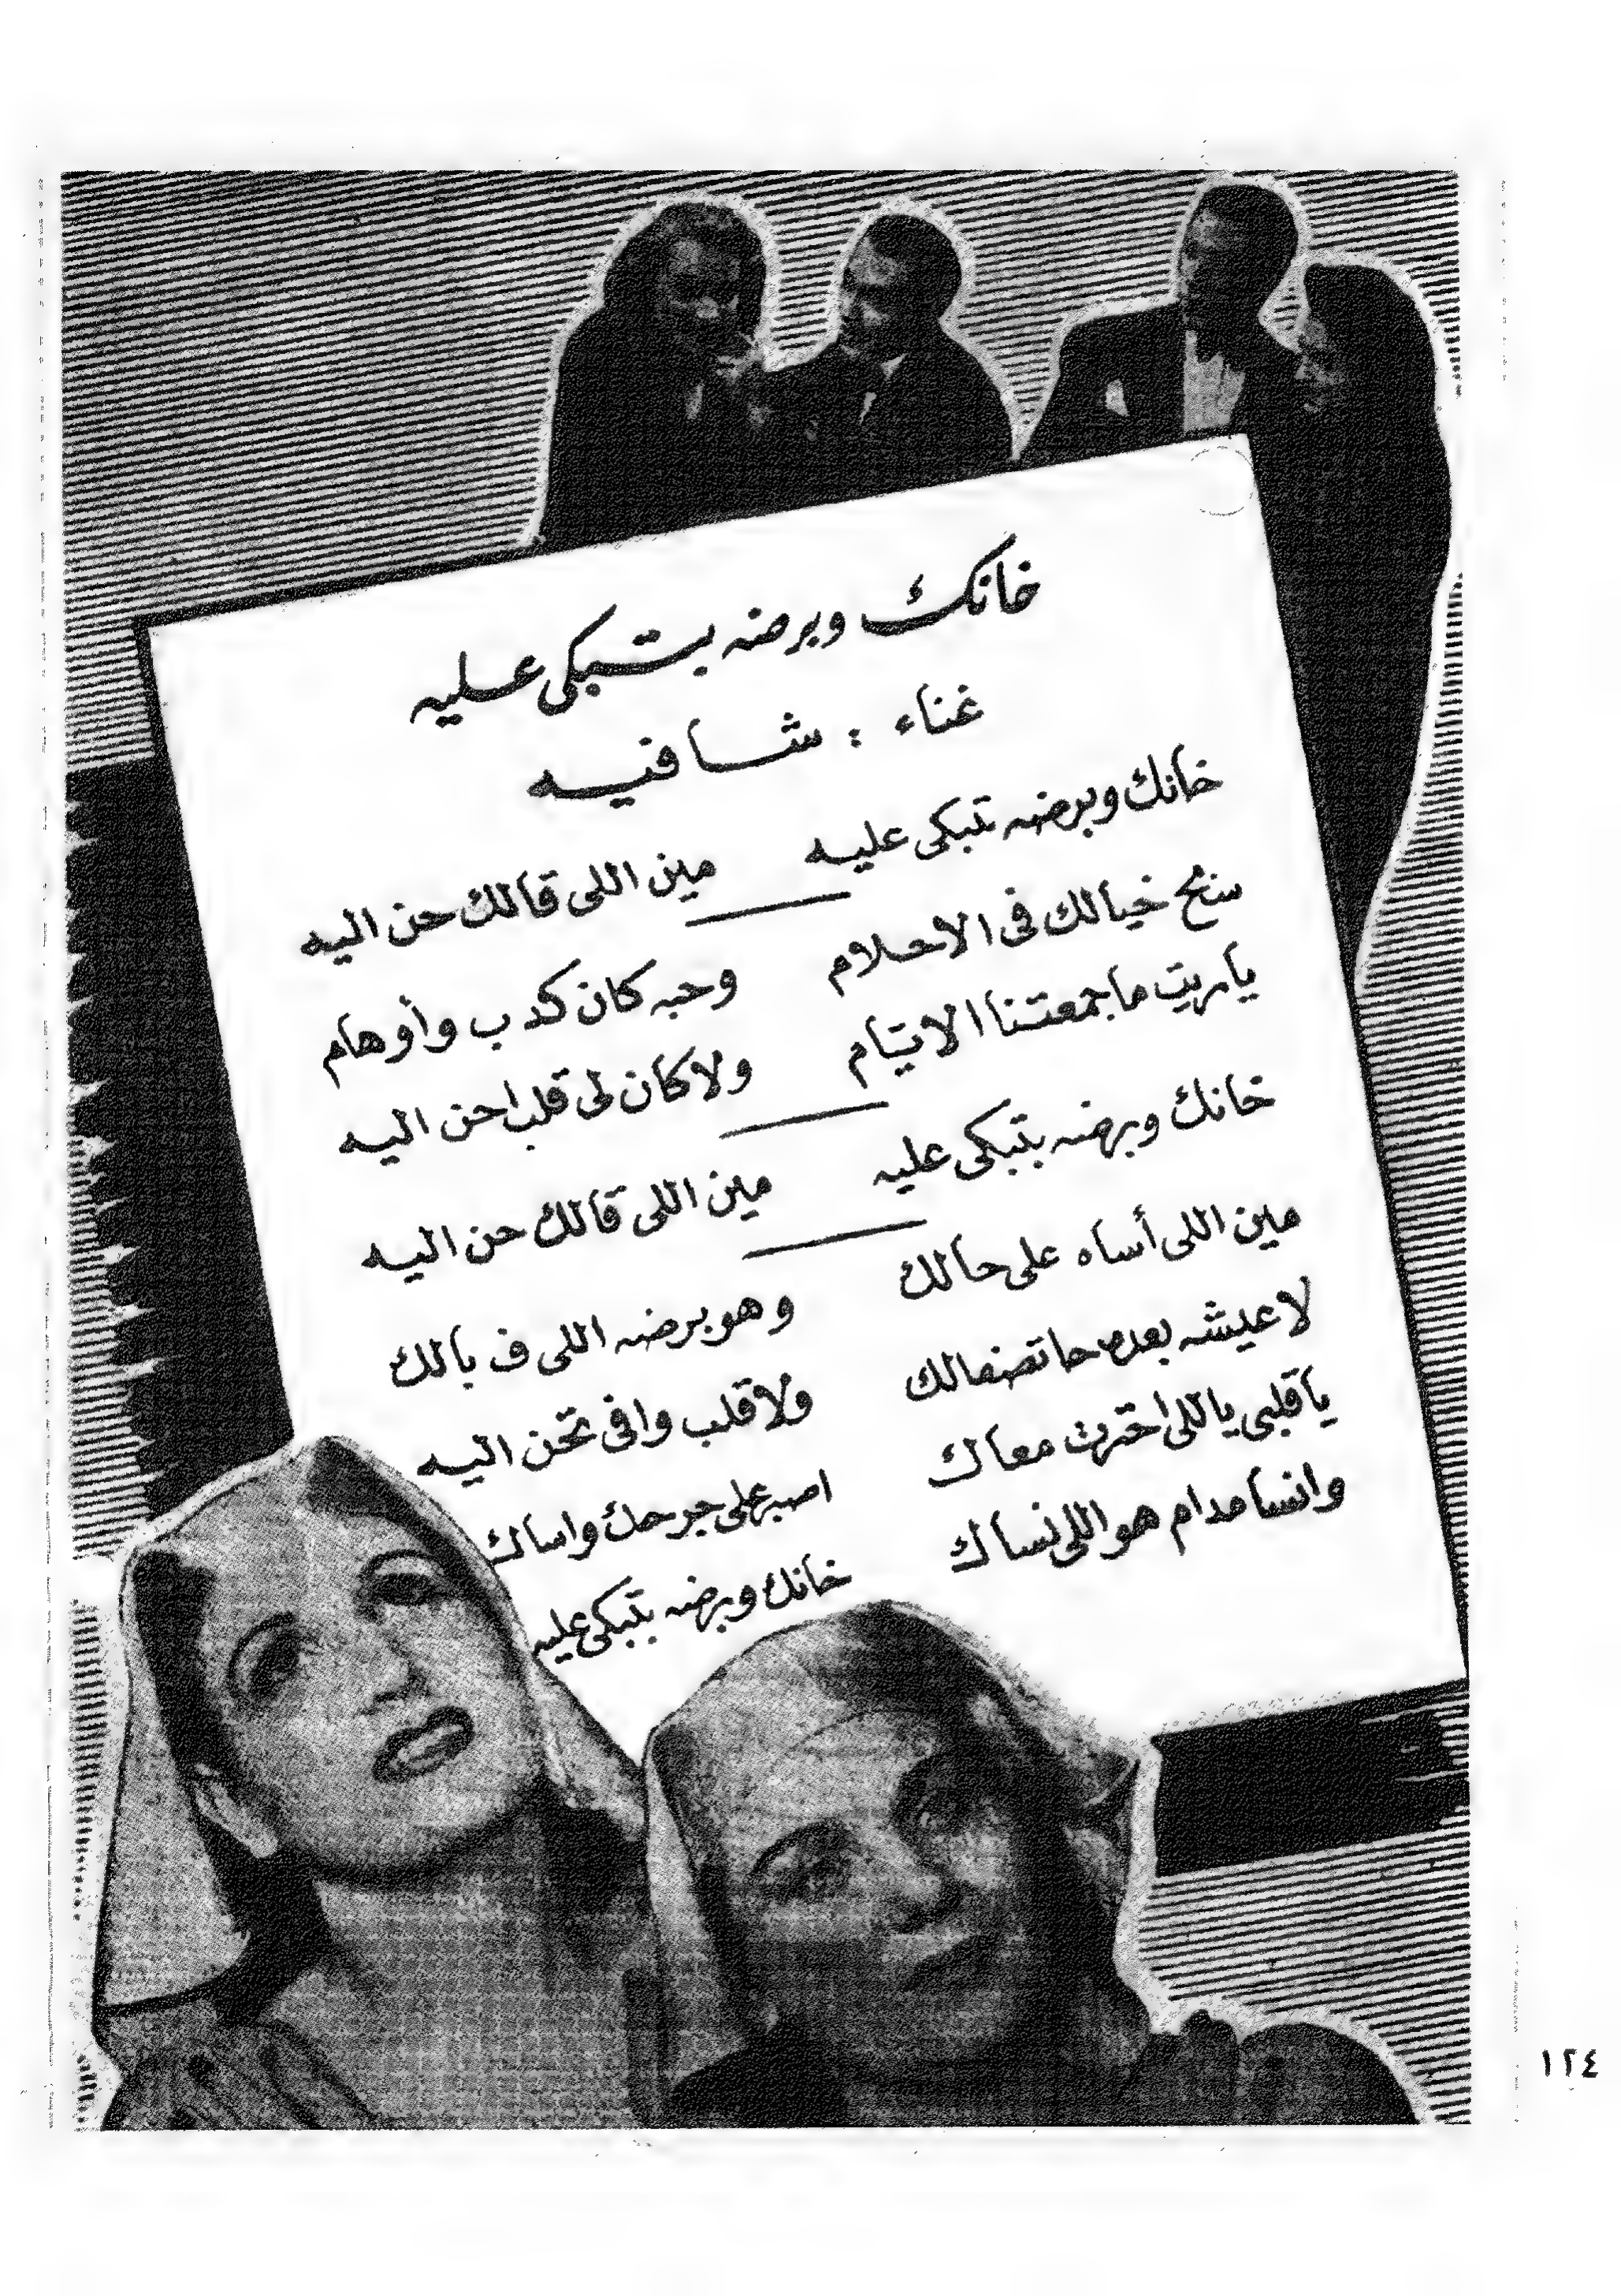 خانك وبرضه بتبكى عليه
غناء : شافيه
خانك وبرضه تبكى عليه مين اللى قالك حن اليه
خيالك فى الاحلام وحبه كان كدب وأوهام
ياريت ما جمعتنا الايام ولا كان لى قلب احن اليه
خانك وبرضه بتبكى عليه مين اللى قالك حن اليه
مين اللى أساه على حالك وهو برضه اللى ف بالك
لا عيشه بعده حا تصفالك ولا قلب وافى تحن اليه
يا قلبى ياللى احترت معاك اصبر على جرحك واساك
وانسا مدام هو اللى نساك خانك وبرضه بتبكى عليه
١٢٤